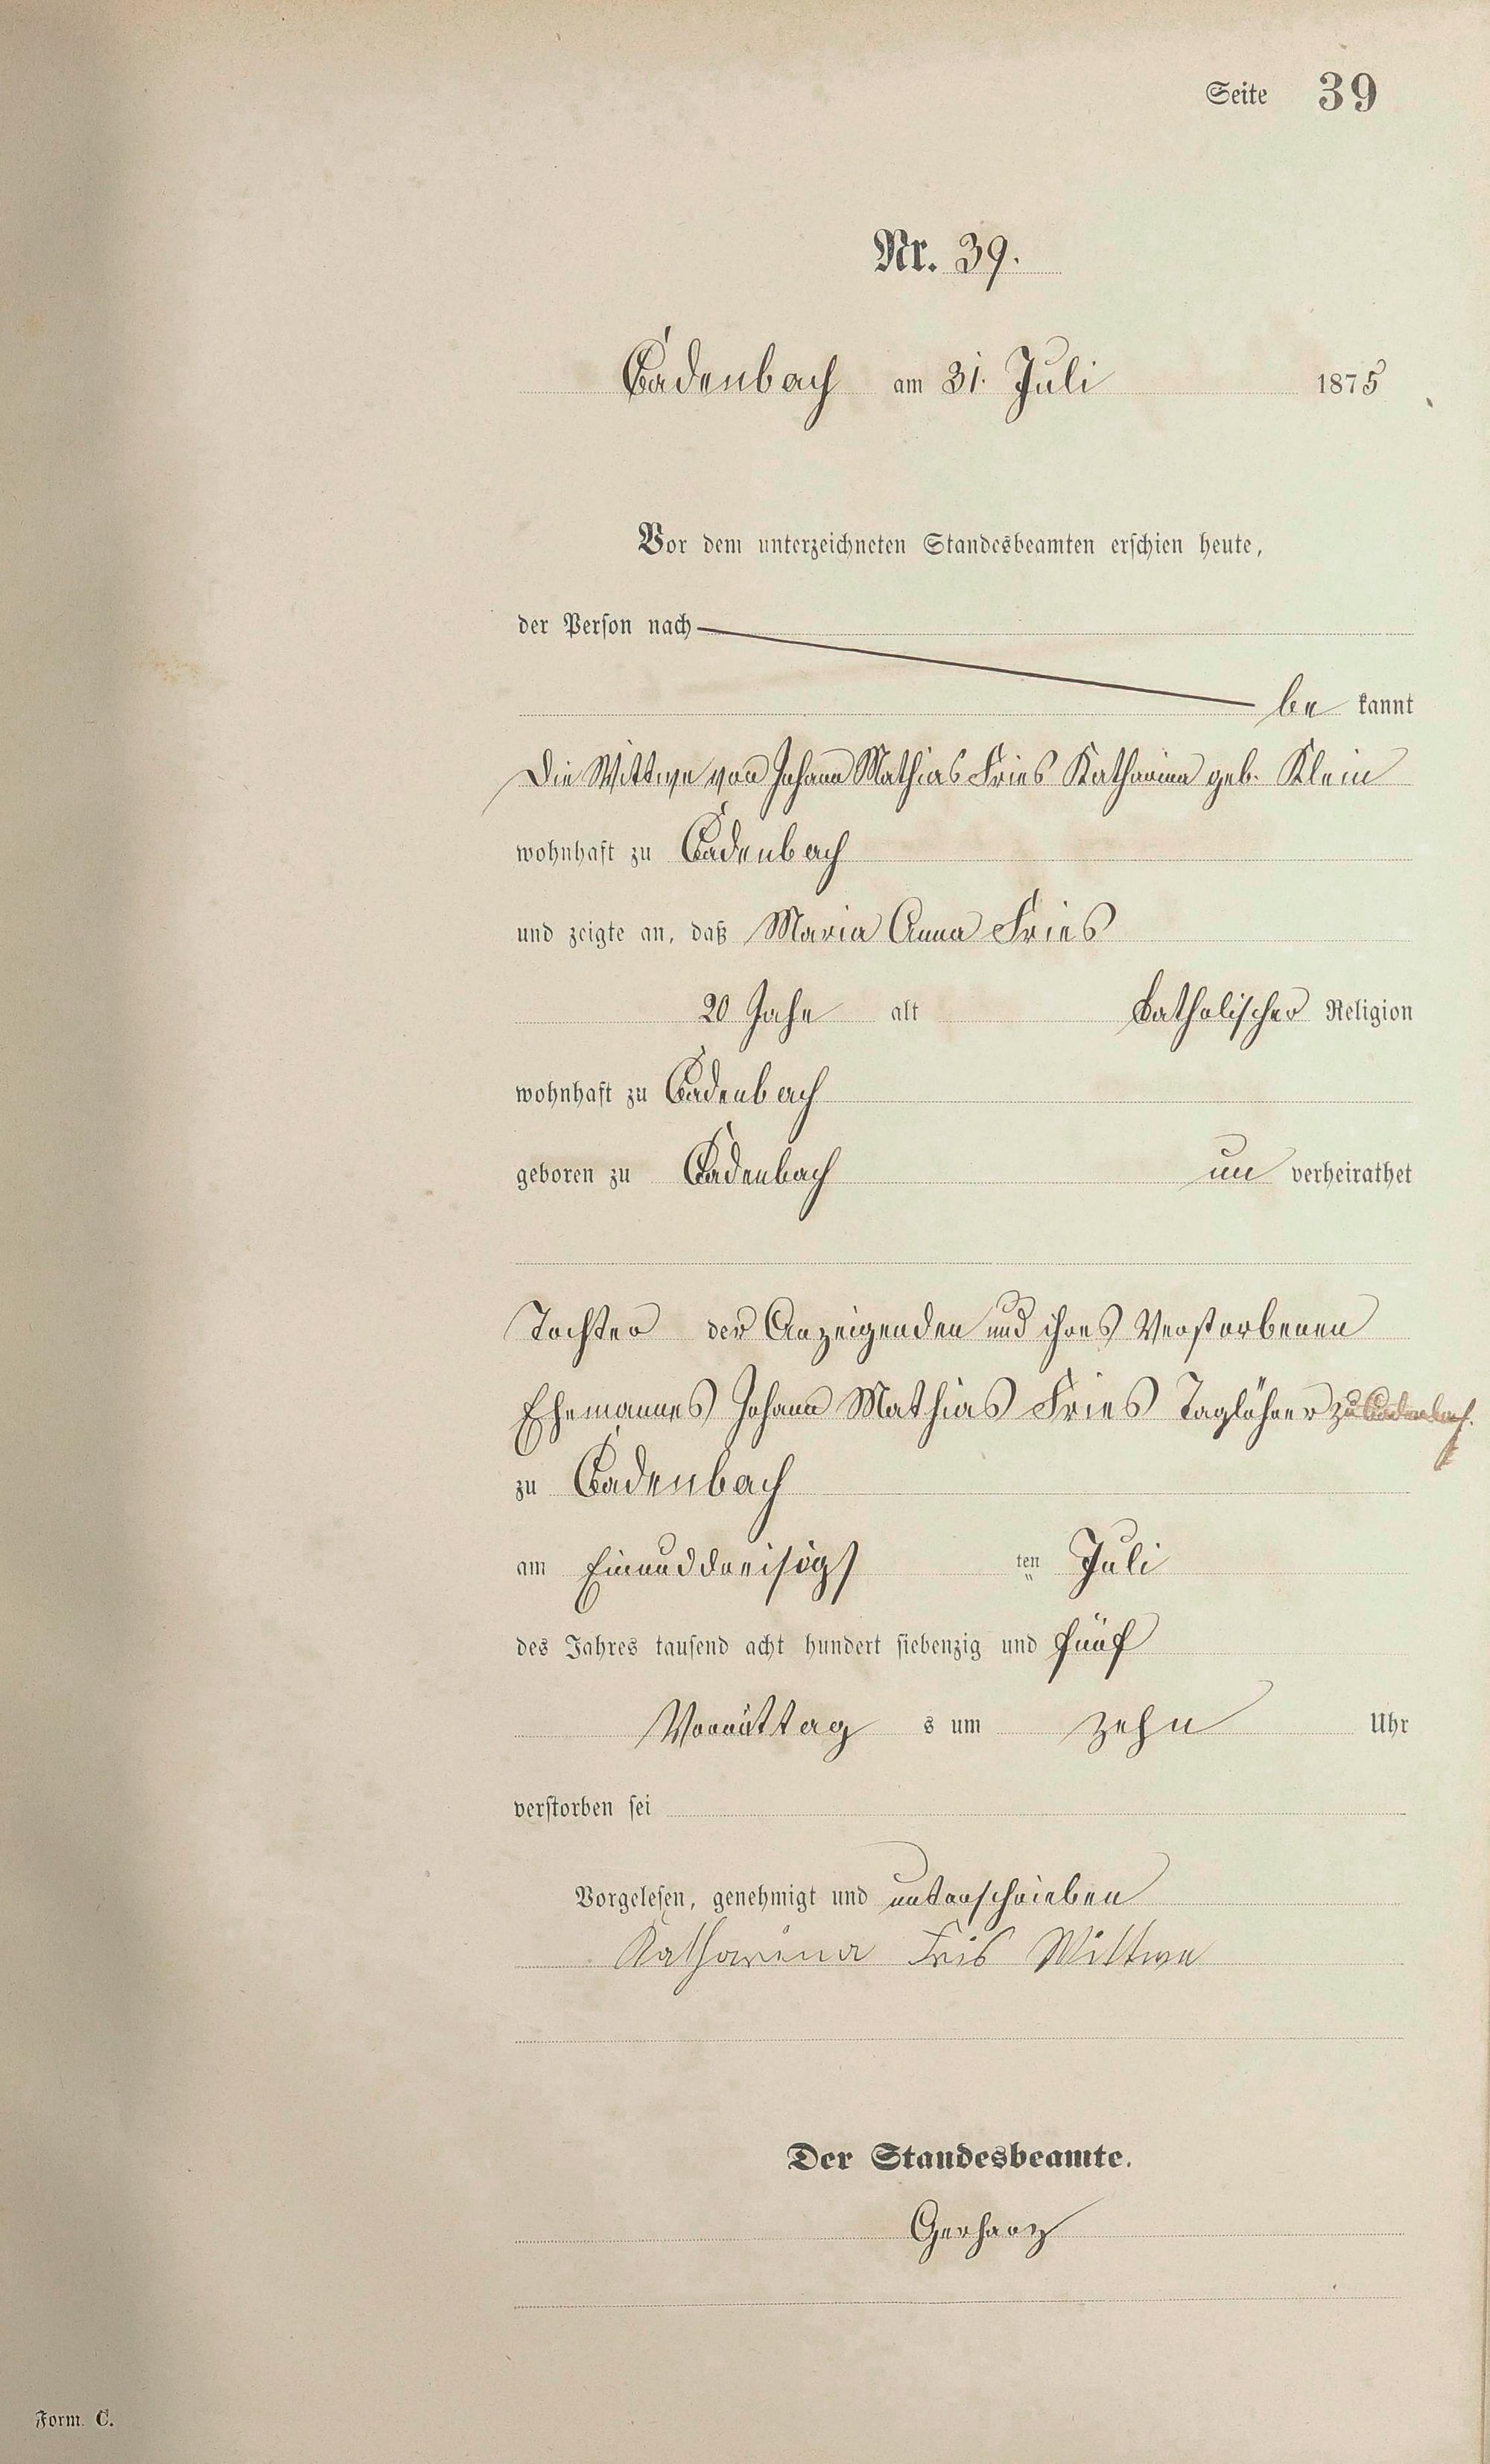 Seite 39
Nr. 39.
Cadenbach am 31. Juli 1875
Vor dem unterzeichneten Standesbeamten erschien heute,
der Person nach
be kannt
Die Wittwe von Johann Mathias Fries Katharina geb. Klein
wohnhaft zu Cadenbach
und zeigte an, daß Maria Anna Fries
20 Jahre alt katholischer Religion
wohnhaft zu Cadenbach
geboren zu Cadenbach un verheirathet
Tochter der Anzeigenden und ihres Verstorbenen
Ehemannes Johann Mathias Fries Taglöhner zu Cadenbach.
zu Cadenbach
am Einunddreisigs ten Juli
des Jahres tausend acht hundert siebenzig und fünf
Vormittag s um zehn Uhr
verstorben sei
Vorgelesen, genehmigt und unterschrieben
Katharina Fris Wittwe
Der Standesbeamte.
Gerharz
Form. C.